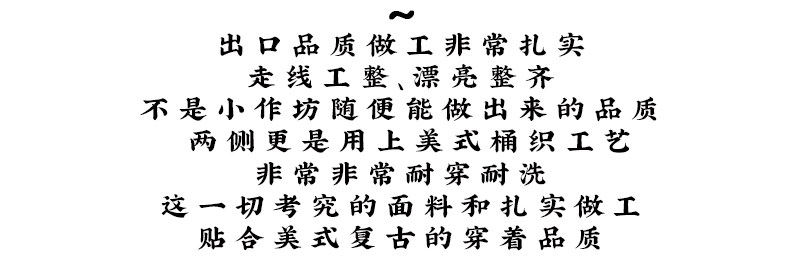 ~
出口品质做工非常扎实
走线工整、漂亮整齐
不是小作坊随便能做出来的品质
两侧更是用上美式桶织工艺
非常非常耐穿耐洗
这一切考究的面料和扎实做工
贴合美式复古的穿着品质